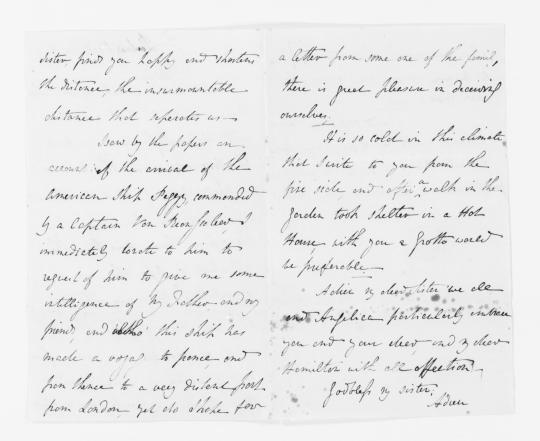 sister finds you happy and shortens
the distance, the insurmountable
distance that seperates us—
I saw by the papers an
account of the arrival of the
american ship Peggy, commanded
by a Captain Von
immediately wrote to him to
request of him to give me some
intelligence of my Brother and my
friend, and altho' this ship has
made a voyage to france, and
from thence to a very distant port
from London, yet do I hope for
a letter from some one of the family,
there is great pleasure in deceiving
ourselves.
It is so cold in this climate
that I write to you from the
fire side and after a walk in the
garden took shelter in a Hot
House, with you a Grotto would
be preferable—
Adieu my dear sister we all
and Angelica particularly embrace
you and your dear, and my dear
Hamilton with all affection—
God bless my sister.
Adieu